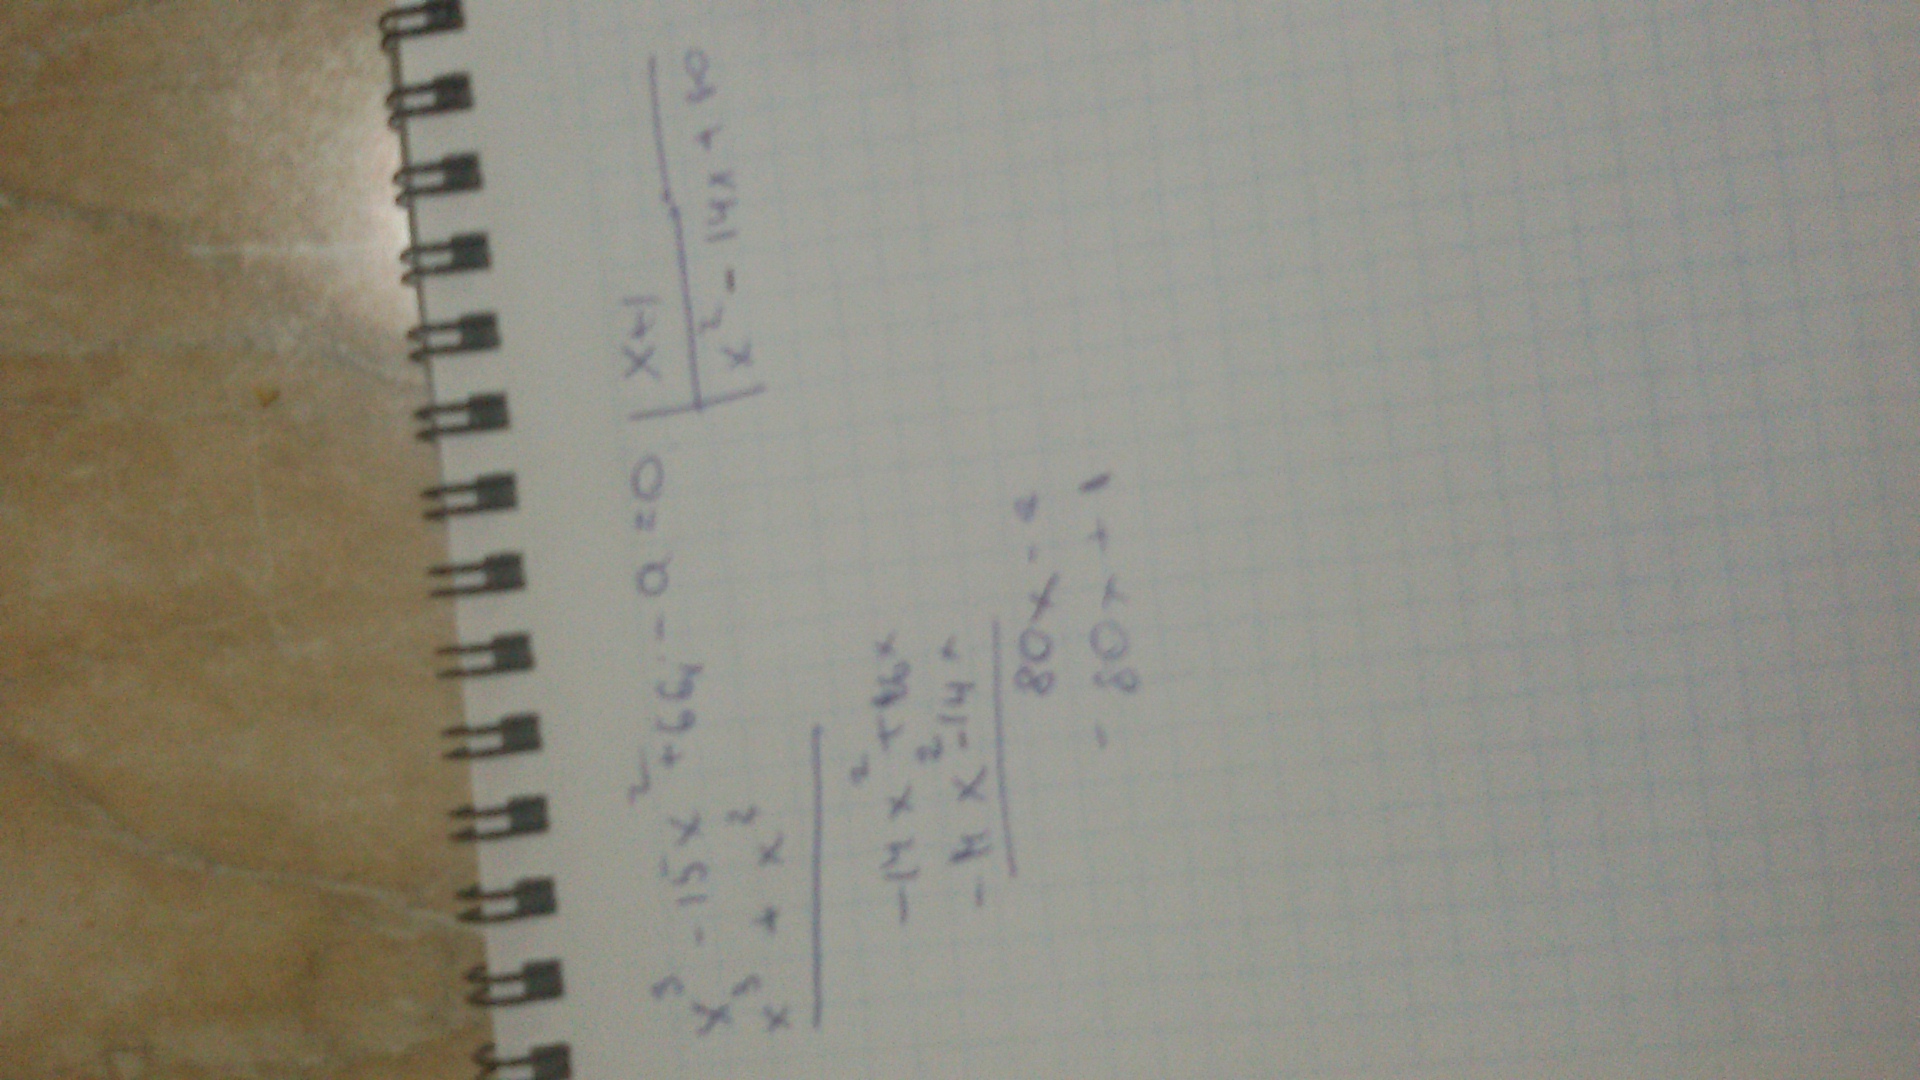 x³ - 15x² + 66x - a = 0 | x+1
x³ + x² | x² - 14x + 80
-14x² + 66x
-14x² - 14x
80x - a
- 80x + 1